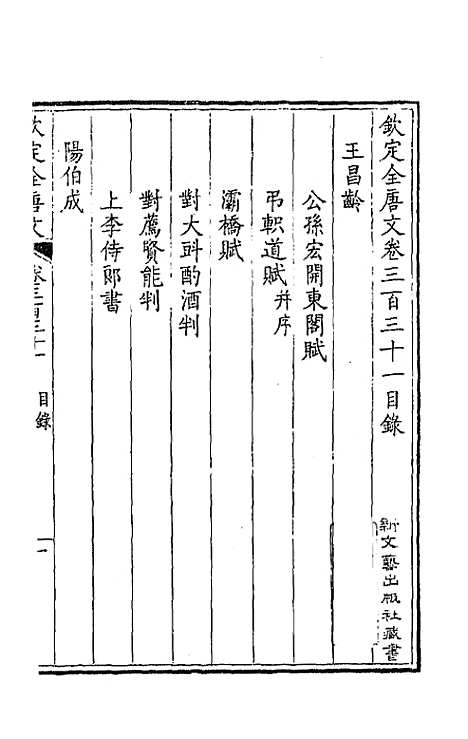 欽定全唐文卷三百三十一目錄
新文藝出版社藏書
王昌齡
公孫宏開東閣賦
弔軹道賦并序
灞橋賦
對大斝酌酒判
對薦賢能判
上李侍郎書
陽伯成
欽定全唐文
卷三百三十一
目錄
一